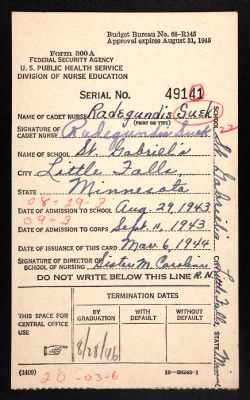 Budget Bureau No. 68-R145
Approval expires August 31, 1945
Form 300A
FEDERAL SECURITY AGENCY
U. S. PUBLIC HEALTH SERVICE
DIVISION OF NURSE EDUCATION
SERIAL NO. 49141
NAME OF CADET NURSE Radegundis Suek
(PRINT OR TYPE)
SIGNATURE OF CADET NURSE Radegundis Suek
NAME OF SCHOOL St. Gabriel's
CITY Little Falls,
STATE Minnesota
DATE OF ADMISSION TO SCHOOL Aug. 29, 1943
DATE OF ADMISSION TO CORPS Sept. 11, 1943
DATE OF ISSUANCE OF THIS CARD Mar. 6, 1944
SIGNATURE OF DIRECTOR OF SCHOOL OF NURSING Sister M. Caroline R.N.
DO NOT WRITE BELOW THIS LINE
THIS SPACE FOR CENTRAL OFFICE USE
TERMINATION DATES
BY GRADUATION
WITH DEFAULT
WITHOUT DEFAULT
8/28/46
(4409)
20-03-6
SCHOOL St. Gabriel's
CITY Little Falls,
STATE Minn.
22
08-29-3